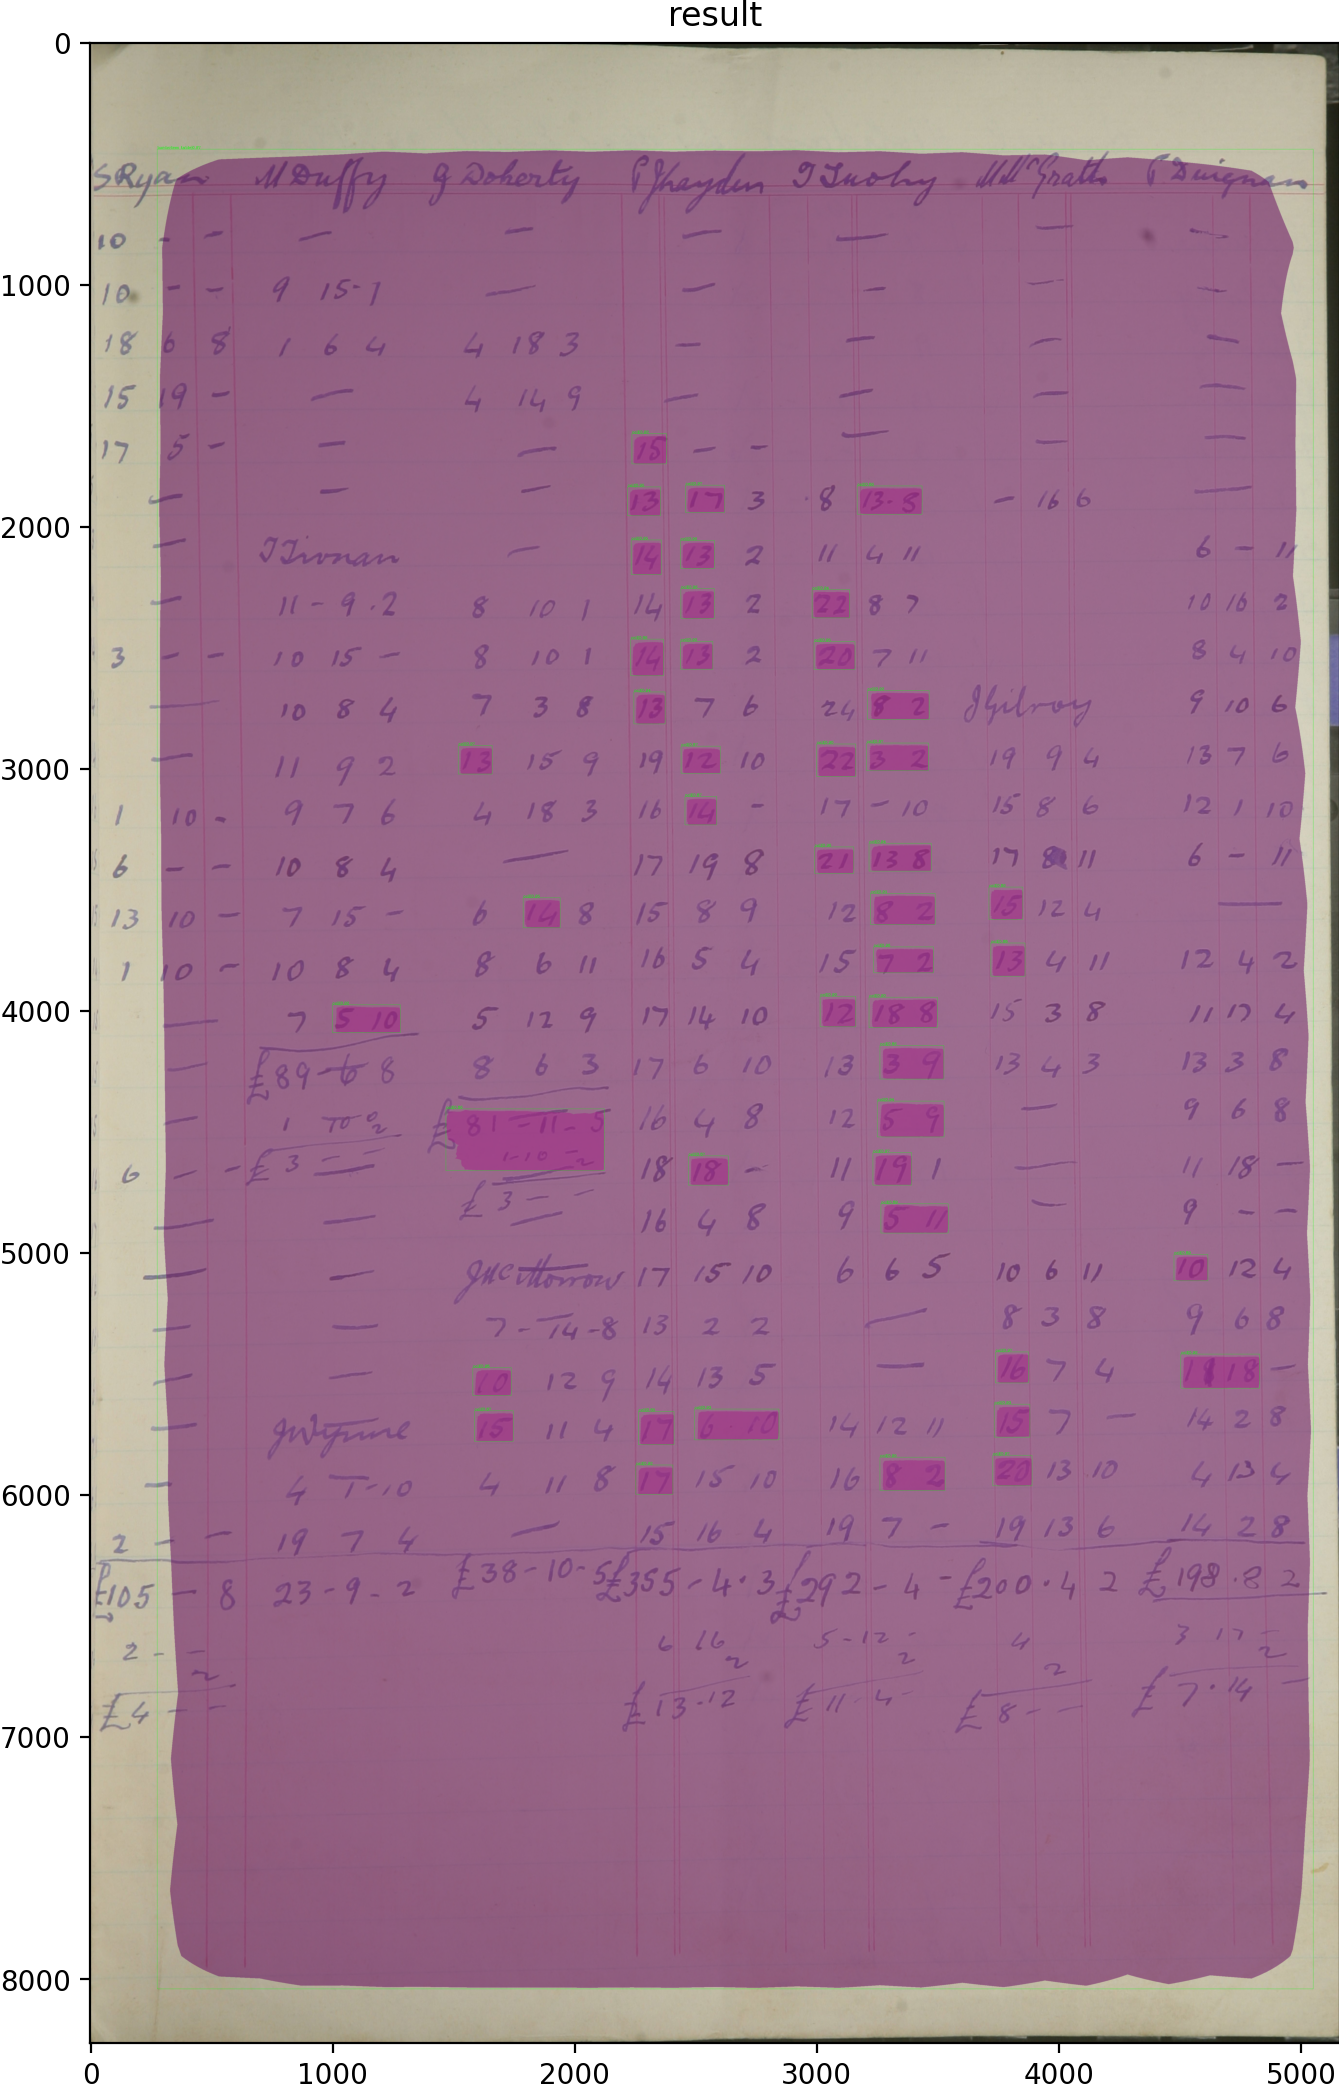 result
S Ryan M Duffy G Doherty P J Hayden T Tuohy M McGrath P Duignan
10 - - — — — — — —
10 - - 9 15-1 — — — — —
18 6 8 1 6 4 4 18 3 — — — —
15 19 - — 4 14 9 — — — —
17 5 - — — 15 - - — — —
— — — 13 17 3 8 13-8 - 16 6 —
— T Tivnan — 14 13 2 11 4 11 6 - 11
— 11-9.2 8 10 1 14 13 2 22 8 7 10 16 2
3 - - 10 15 - 8 10 1 14 13 2 20 7 11 8 4 10
— 10 8 4 7 3 8 13 7 6 24 8 2 J Gilroy 9 10 6
— 11 9 2 13 15 9 19 12 10 22 3 2 19 9 4 13 7 6
1 10 - 9 7 6 4 18 3 16 14 - 17 - 10 15 8 6 12 1 10
6 - - 10 8 4 — 17 19 8 21 13 8 17 8 11 6 - 11
13 10 - 7 15 - 6 14 8 15 8 9 12 8 2 15 12 4 —
1 10 - 10 8 4 8 6 11 16 5 4 15 7 2 13 4 11 12 4 2
— 7 5 10 5 12 9 17 14 10 12 18 8 15 3 8 11 17 4
— £89-6 8 8 6 3 17 6 10 13 3 9 13 4 3 13 3 8
— 1 10 0 2 £81-11-5 16 4 8 12 5 9 — 9 6 8
6 - - £3 - - 1-10 - 2 18 18 - 11 19 1 — 11 18 -
— — £3 - - 16 4 8 9 5 11 — 9 - -
— — J McMorrow 17 15 10 6 6 5 10 6 11 10 12 4
— — 7-14-8 13 2 2 — 8 3 8 9 6 8
— — 10 12 9 14 13 5 — 16 7 4 18 18 -
— J Wynne 15 11 4 17 6 10 14 12 11 15 7 - 14 2 8
— 4 1-10 4 11 8 17 15 10 16 8 2 20 13 10 4 13 4
2 - - 19 7 4 — 15 16 4 19 7 - 19 13 6 14 2 8
£105 - 8 23-9-2 £38-10-5 £355-4.3 £292-4- £200.4 2 £198.8 2
2 - - 2 6 16 2 5-12- 2 4 2 3 17 - 2
£4 - - £13-12 £11-4- £8 - - £7.14 -
0
1000
2000
3000
4000
5000
6000
7000
8000
0 1000 2000 3000 4000 5000